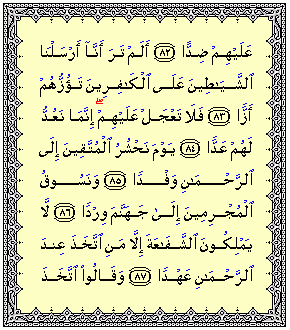 عَلَيْهِمْ ضِدًّا ﴿٨٢﴾ أَلَمْ تَرَ أَنَّآ أَرْسَلْنَا
ٱلشَّيَـٰطِينَ عَلَى ٱلْكَـٰفِرِينَ تَؤُزُّهُمْ
أَزًّا ﴿٨٣﴾ فَلَا تَعْجَلْ عَلَيْهِمْ ۖ إِنَّمَا نَعُدُّ
لَهُمْ عَدًّا ﴿٨٤﴾ يَوْمَ نَحْشُرُ ٱلْمُتَّقِينَ إِلَى
ٱلرَّحْمَـٰنِ وَفْدًا ﴿٨٥﴾ وَنَسُوقُ
ٱلْمُجْرِمِينَ إِلَىٰ جَهَنَّمَ وِرْدًا ﴿٨٦﴾ لَّا
يَمْلِكُونَ ٱلشَّفَـٰعَةَ إِلَّا مَنِ ٱتَّخَذَ عِندَ
ٱلرَّحْمَـٰنِ عَهْدًا ﴿٨٧﴾ وَقَالُوا۟ ٱتَّخَذَ